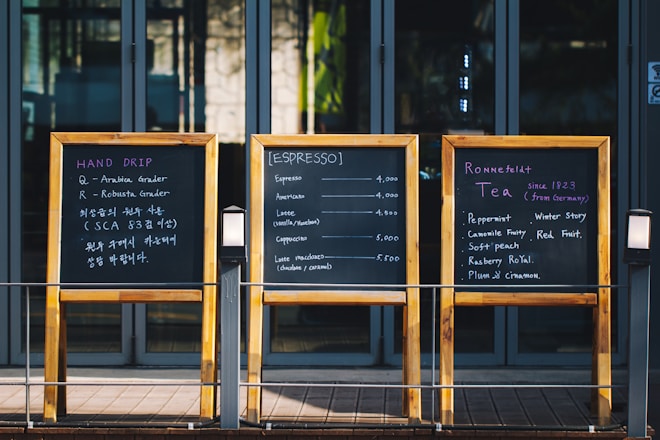 HAND DRIP
Q - Arabica Grader
R - Robusta Grader
최상급의 원두 사용
(SCA 83점 이상)
원두 구매시 카운터에
상담 바랍니다.
[ESPRESSO]
Espresso 4,000
Americano 4,000
Latte 4,500
(vanilla/Hazelnut)
Cappuccino 5,000
Latte macchiato 5,500
(chocolate / caramel)
Ronnefeldt
Tea since 1823
(from Germany)
Peppermint
Camomile Fruity
Soft peach
Rasberry Royal.
Plum & cinamon.
Winter Story
Red Fruit.